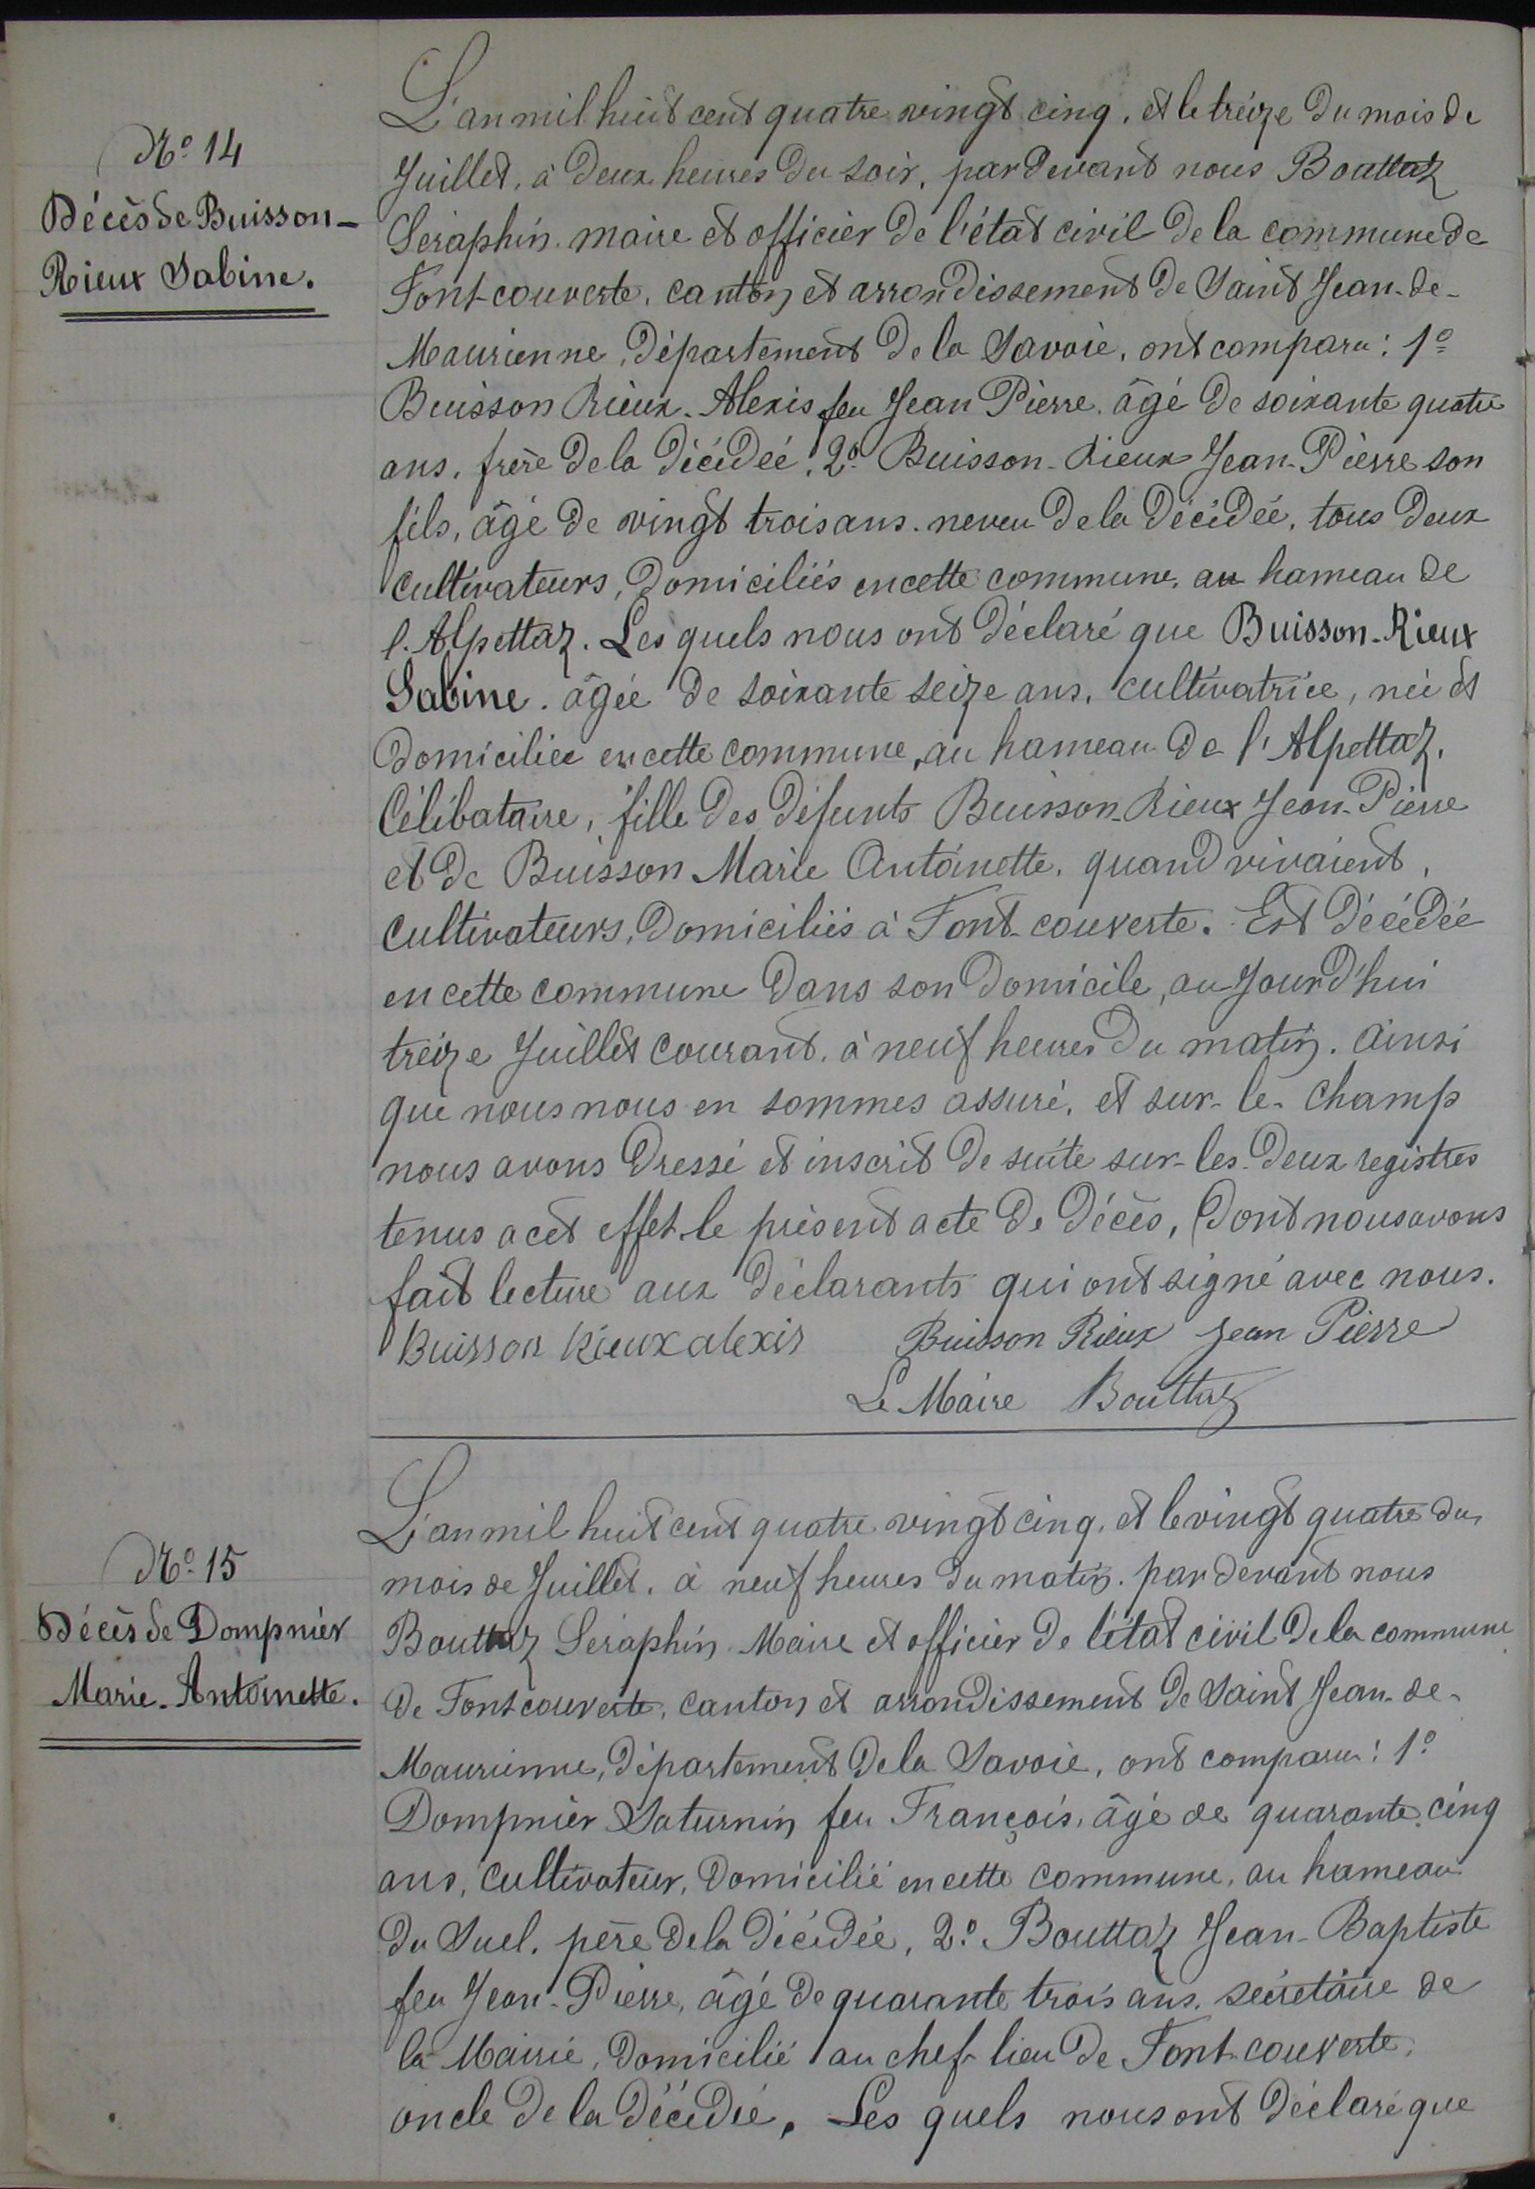 Nº 14
Décès de Buisson-
Rieux Sabine.
L'an mil huit cent quatre vingt cinq, et le treize du mois de
Juillet, à deux heures du soir, par devant nous Bouttaz
Séraphin, maire et officier de l'état civil de la commune de
Font-couverte, canton et arrondissement de Saint Jean-de-
Maurienne, département de la Savoie, ont comparu : 1º
Buisson Rieux Alexis feu Jean Pierre, âgé de soixante quatre
ans, frère de la décédée, 2º Buisson-Rieux Jean-Pierre son
fils, âgé de vingt trois ans, neveu de la décédée, tous deux
cultivateurs, domiciliés en cette commune, au hameau de
l'Alpettaz. Les quels nous ont déclaré que Buisson-Rieux
Sabine, âgée de soixante seize ans, cultivatrice, née et
domiciliée en cette commune, au hameau de l'Alpettaz,
Célibataire, fille des défunts Buisson-Rieux Jean-Pierre
et de Buisson Marie Antoinette, quand vivaient,
cultivateurs, domiciliés à Font-couverte. Est décédée
en cette commune dans son domicile, au jourd'hui
treize Juillet courant, à neuf heures du matin. Ainsi
que nous nous en sommes assuré, et sur-le-champ
nous avons dressé et inscrit de suite sur les deux registres
tenus a cet effet le présent acte de décès, dont nous avons
fait lecture aux déclarants qui ont signé avec nous.
Buisson Rieux alexis Buisson Rieux Jean Pierre
Le Maire Bouttaz
Nº 15
Décès de Dompnier
Marie-Antoinette.
L'an mil huit cent quatre vingt cinq, et le vingt quatre du
mois de Juillet, à neuf heures du matin, par devant nous
Bouttaz Séraphin, Maire et officier de l'état civil de la commune
de Font couverte, canton et arrondissement de Saint Jean-de-
Maurienne, département de la Savoie, ont comparu : 1º
Dompnier Saturnin feu François, âgé de quarante cinq
ans, cultivateur, domicilié en cette commune, au hameau
du Suel, père de la décédée, 2º Bouttaz Jean-Baptiste
feu Jean-Pierre, âgé de quarante trois ans, secrétaire de
la Mairie, domicilié au chef-lieu de Font-couverte,
oncle de la décédée, Les quels nous ont déclaré que